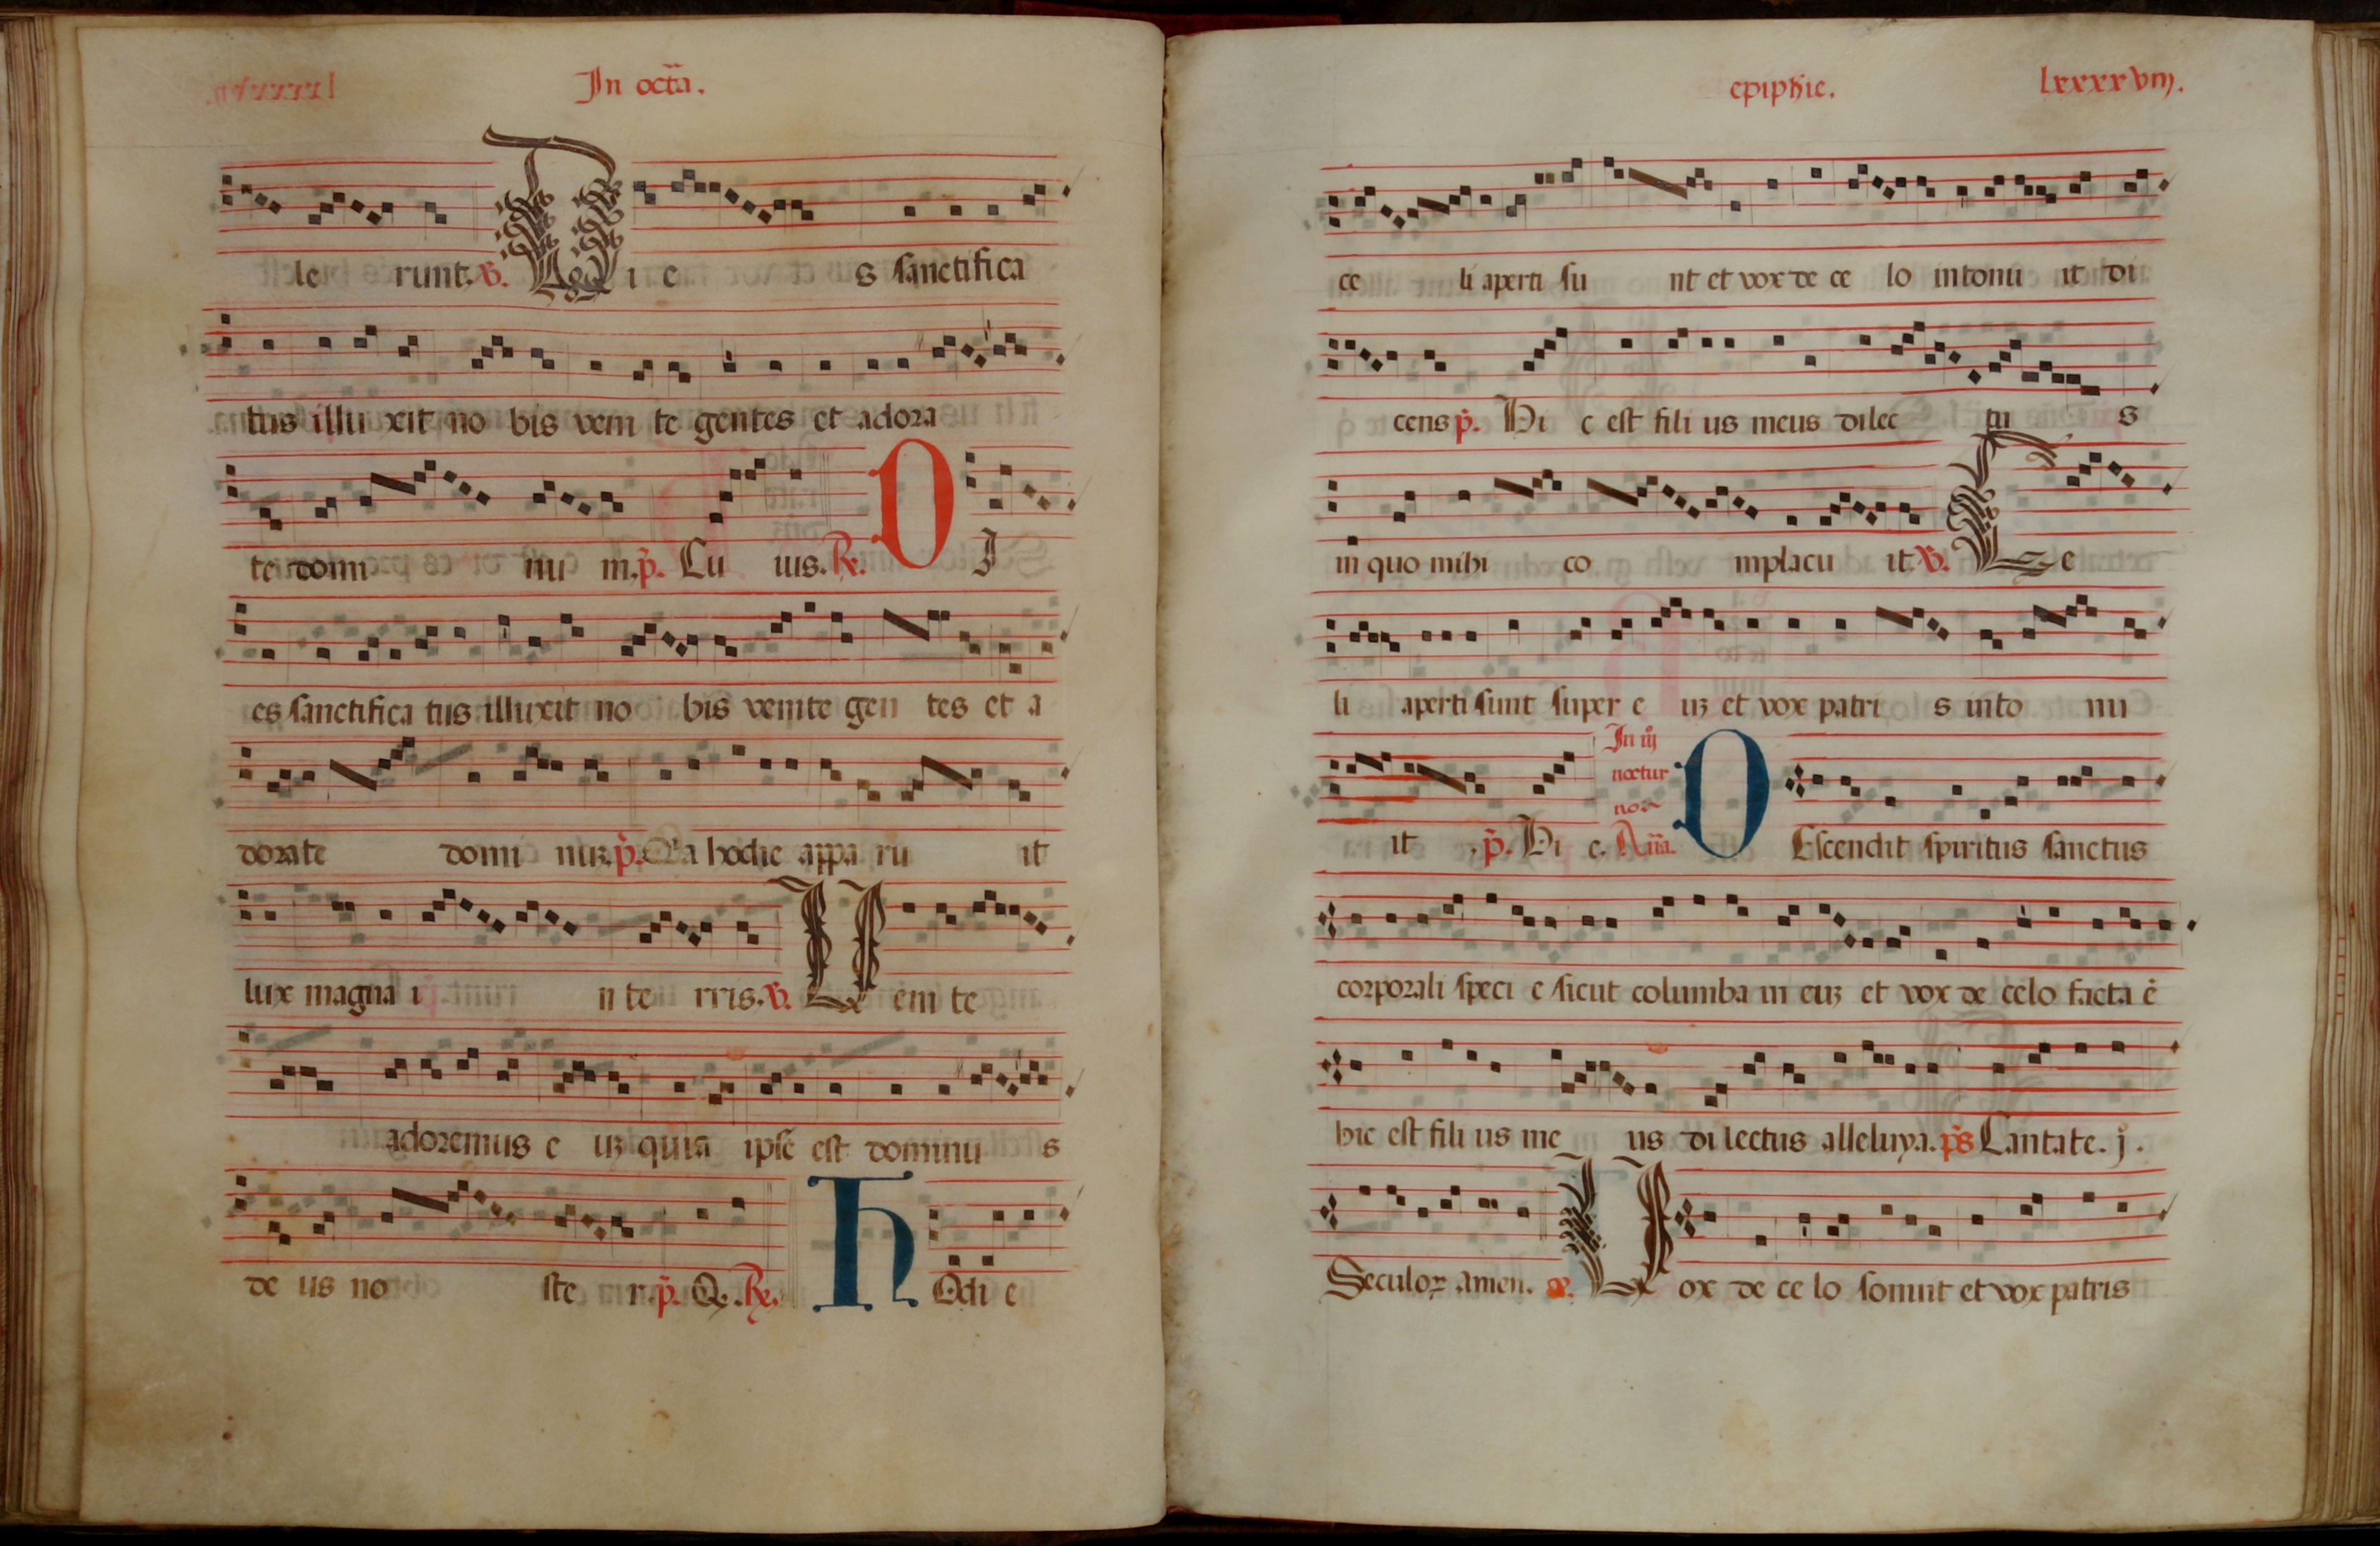 In octa.
le runt. v. Di e s sanctifica
tus illu xit no bis veni te gentes et adora
te domi nu m. p. Cu ius. R. D I
es sanctifica tus illuxit no bis venite gen tes et a
dorate domi nuꝫ. p. Qa hodie appa ru it
lux magna i n te rris. v. V eni te
adoremus e uꝫ quia ipse est dominu s
de us no ste r. p. Q. R. H Odi e
epiphie. lxxxxviij.
ce li aperti su nt et vox de ce lo intonu it di
cens p. Hi c est fili us meus dilec tu s
in quo mihi co mplacu it v. Ce
li aperti sunt super e uꝫ et vox patri s into nu
In iij
noctur
noꝝ
it p. Hi c. Aña. D Escendit spiritus sanctus
corporali speci e sicut columba in euꝫ et vox de celo facta ē
hic est fili us me us di lectus alleluya. ps Cantate. j.
Seculoꝝ amen. v. V ox de ce lo sonuit et vox patris